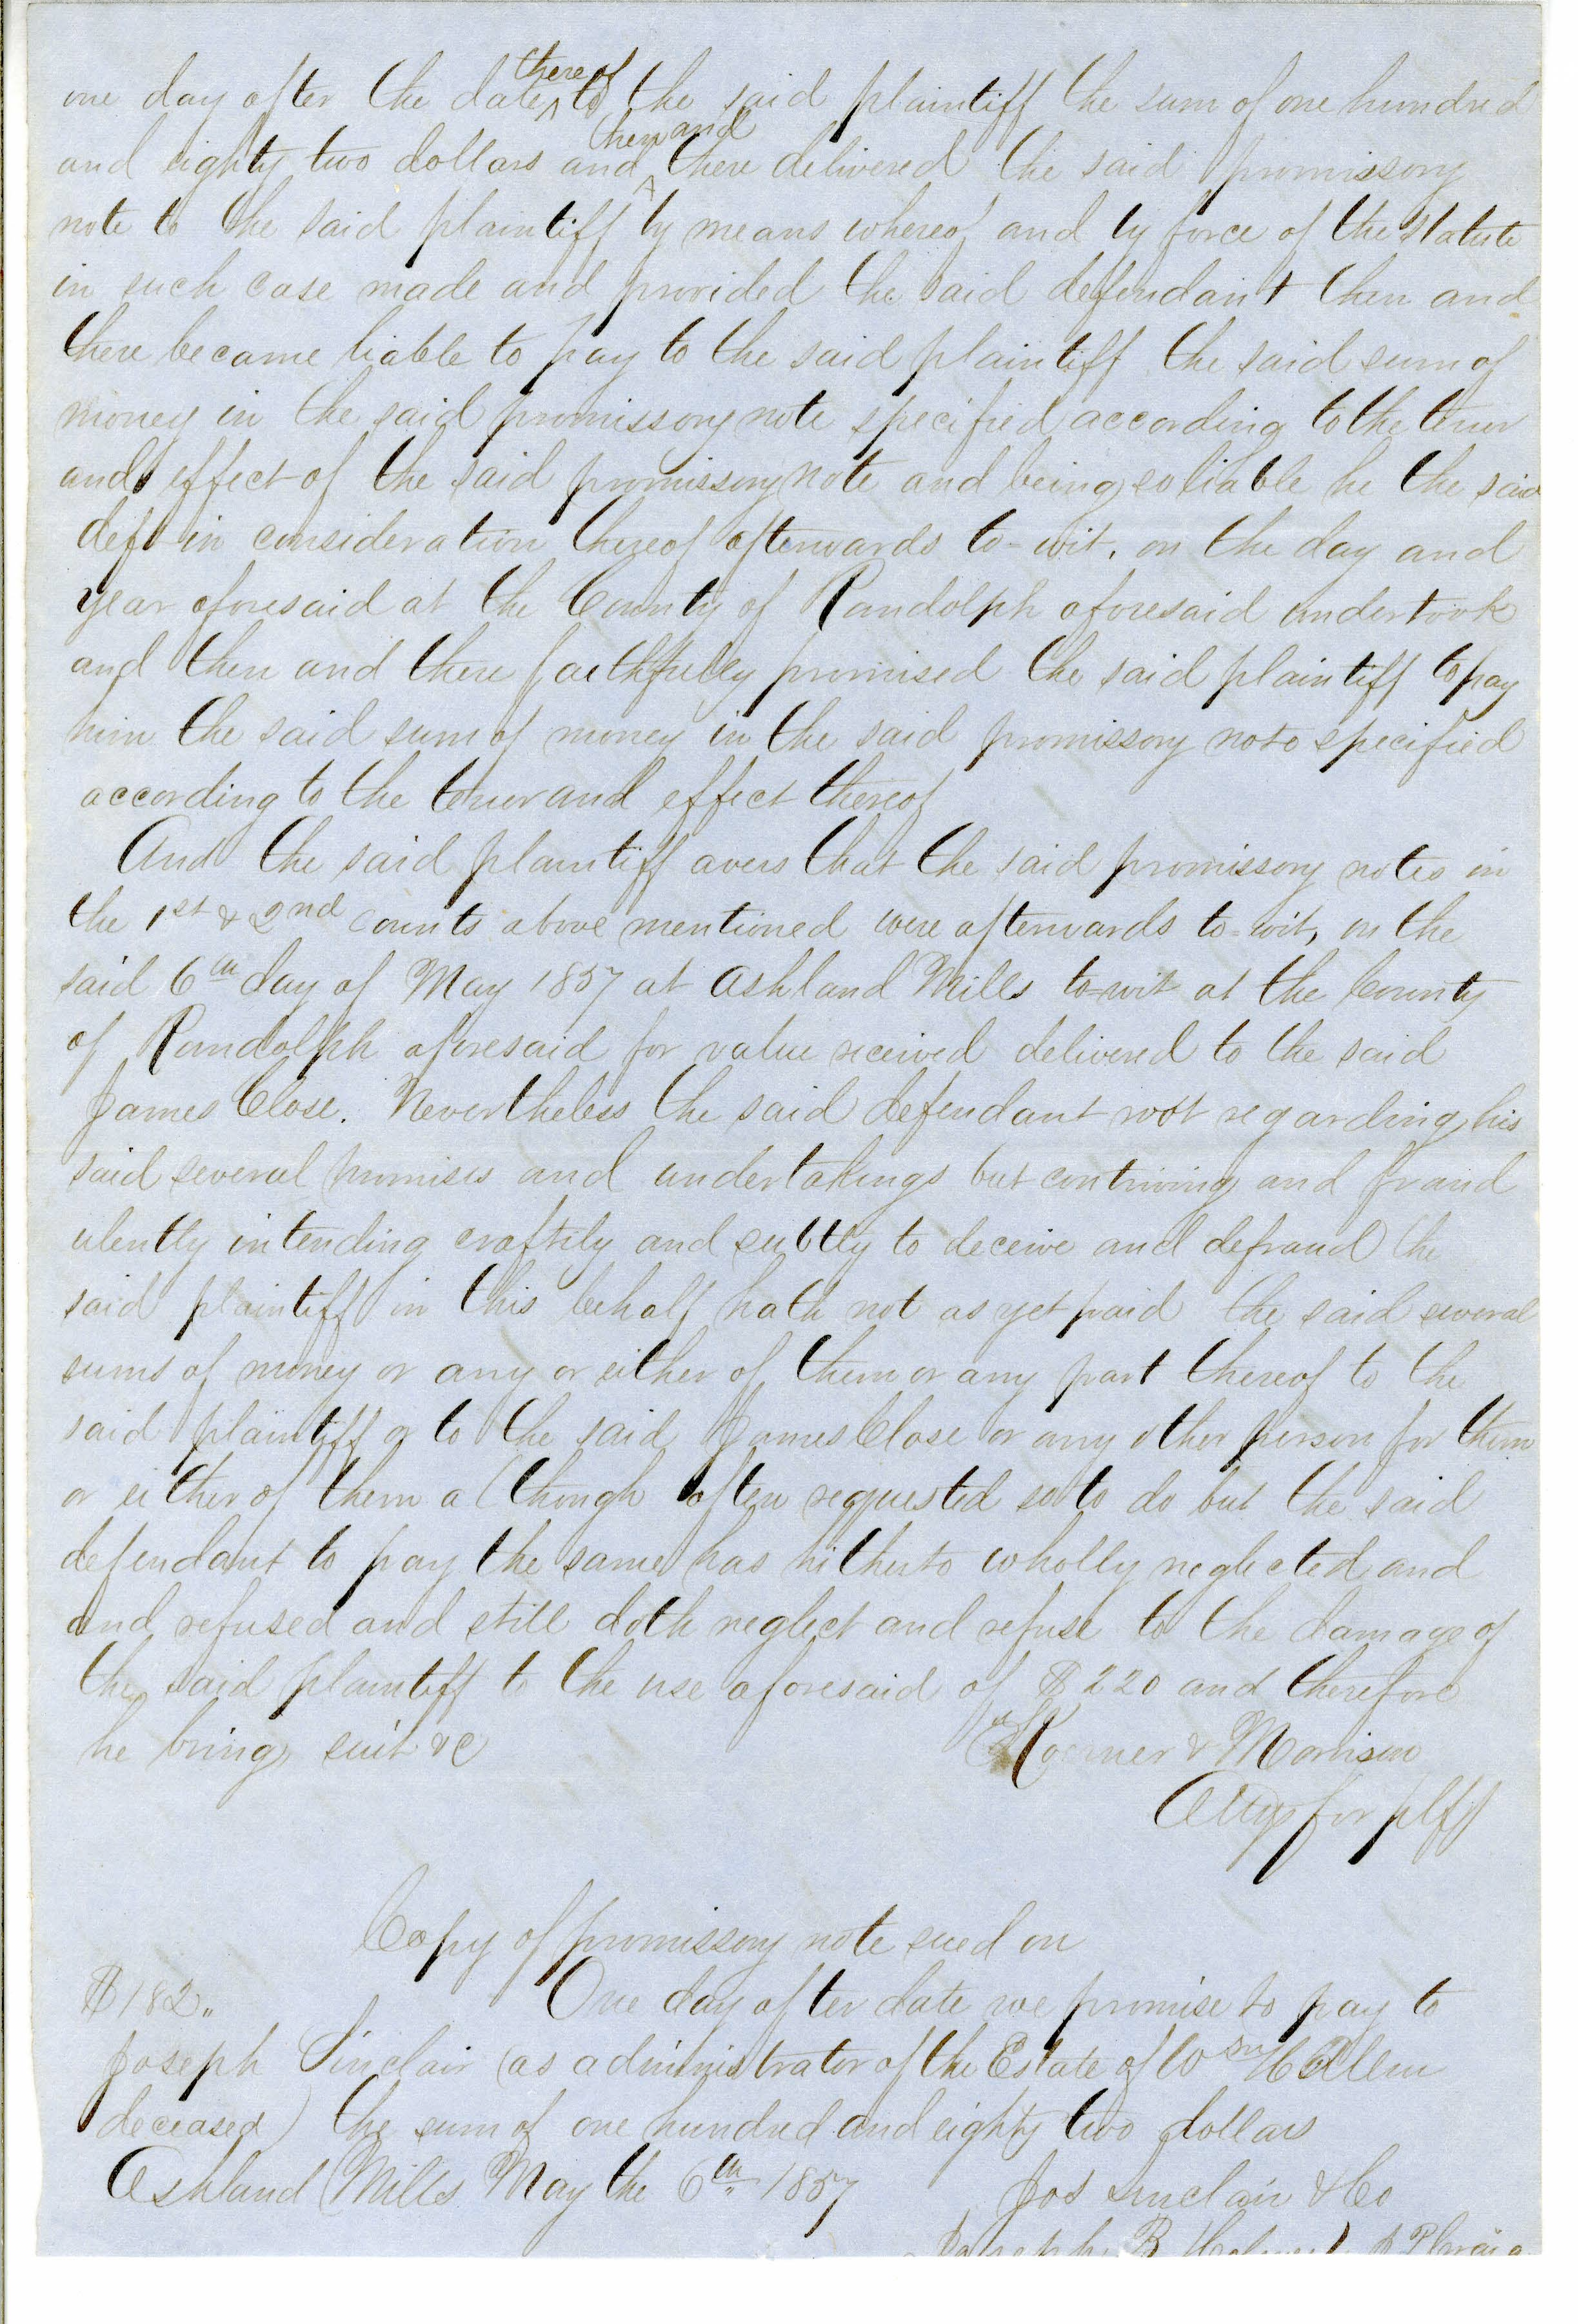 one day after the date thereof to the said plaintiff the sum of one hundred
and eighty two dollars and then and there delivered the said promissory
note to the said plaintiff by means whereof and by force of the statute
in such case made and provided the said defendant then and
there became liable to pay to the said plaintiff the said sum of
money in the said promissory note specified according to the tenor
and effect of the said promissory note and being so liable he the said
deft in consideration thereof afterwards to-wit, on the day and
year aforesaid at the County of Randolph aforesaid undertook
and then and there faithfully promised the said plaintiff to pay
him the said sum of money in the said promissory note specified
according to the tenor and effect thereof
And the said plaintiff avers that the said promissory notes in
the 1st & 2nd counts above mentioned were afterwards to-wit, on the
said 6th day of May 1857 at Ashland Mills to-wit at the County
of Randolph aforesaid for value received delivered to the said
James Close. Nevertheless the said defendant not regarding his
said several promises and undertakings but contriving and fraud
ulently intending craftily and subtly to deceive and defraud the
said plaintiff in this behalf hath not as yet paid the said several
sums of money or any or either of them or any part thereof to the
said plaintiff or to the said James Close or any other person for them
or either of them although often requested so to do but the said
defendant to pay the same has hitherto wholly neglected and
and refused and still doth neglect and refuse to the damage of
the said plaintiff to the use aforesaid of $220 and therefore
he brings suit &c
Koerner & Morrison
Attys for plff
Copy of promissory note sued on
$182.,
One day after date we promise to pay to
Joseph Sinclair (as administrator of the Estate of Wm
deceased) the sum of one hundred and eighty two dollars
Ashland Mills May the 6th 1857
Jos Sinclair & Co
Joseph B